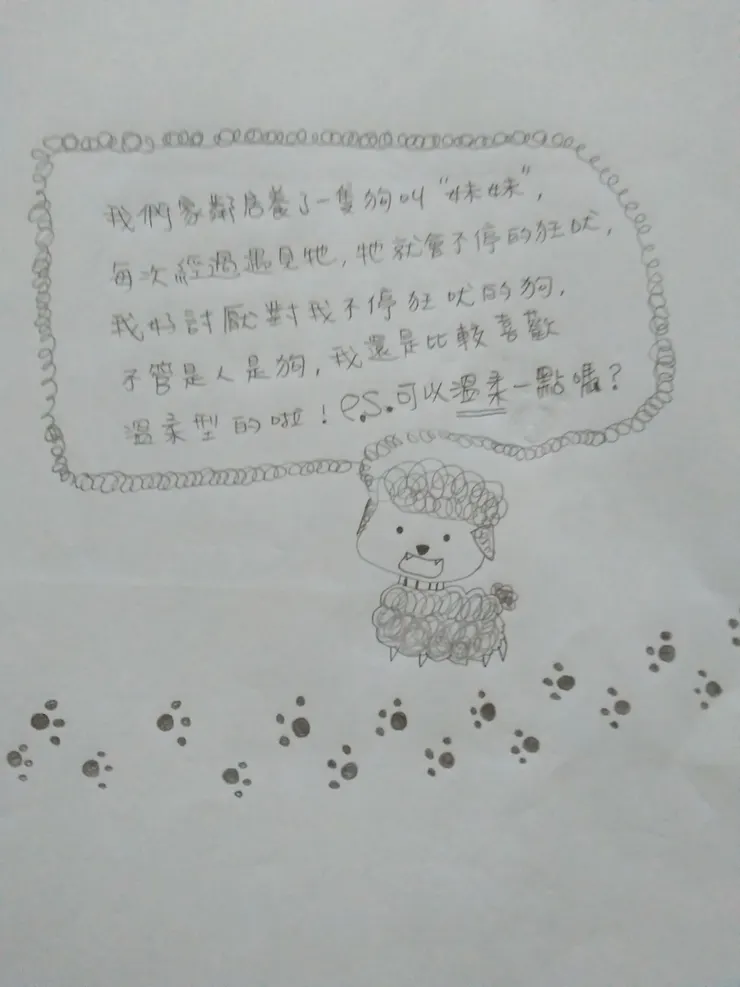 我們家鄰居養了一隻狗叫“妹妹”,
每次經過遇見牠,牠就會不停的狂吠,
我好討厭對我不停狂吠的狗,
不管是人是狗,我還是比較喜歡
溫柔型的啦!P.S.可以溫柔一點嗎?